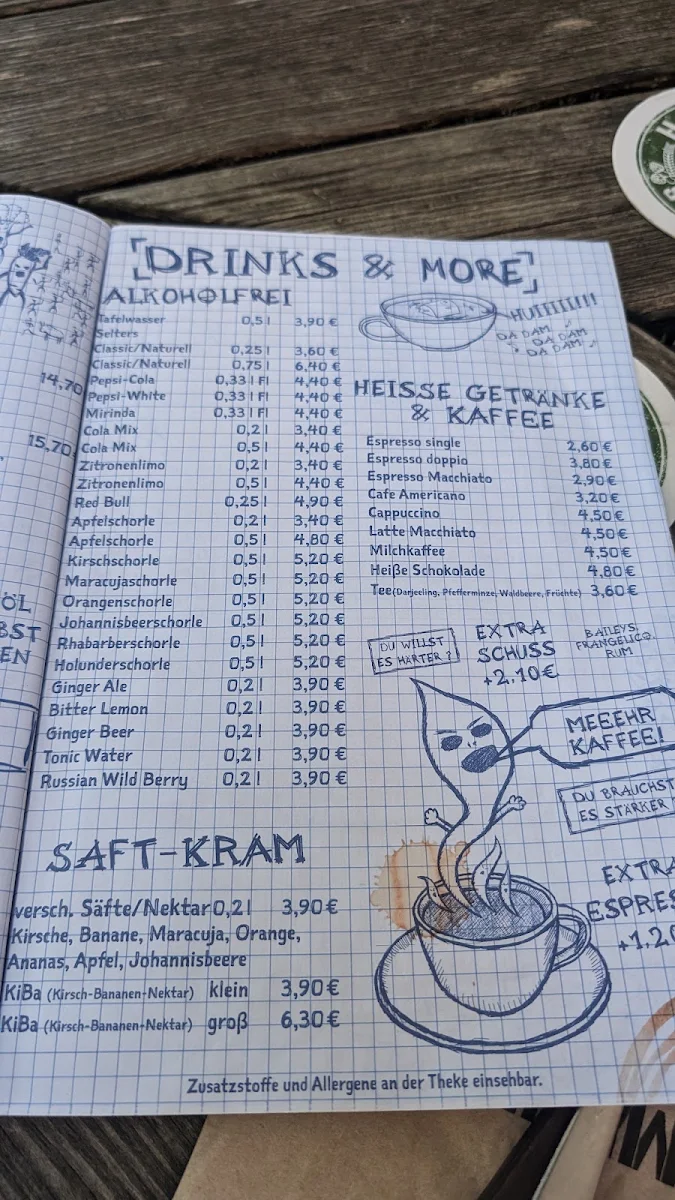 [DRINKS & MORE]
ALKOHOLFREI
Tafelwasser 0,5 l 3,90 €
Selters
Classic/Naturell 0,25 l 3,60 €
Classic/Naturell 0,75 l 6,40 €
Pepsi-Cola 0,33 l Fl 4,40 €
Pepsi-White 0,33 l Fl 4,40 €
Mirinda 0,33 l Fl 4,40 €
Cola Mix 0,2 l 3,40 €
Cola Mix 0,5 l 4,40 €
Zitronenlimo 0,2 l 3,40 €
Zitronenlimo 0,5 l 4,40 €
Red Bull 0,25 l 4,90 €
Apfelschorle 0,2 l 3,40 €
Apfelschorle 0,5 l 4,80 €
Kirschschorle 0,5 l 5,20 €
Maracujaschorle 0,5 l 5,20 €
Orangenschorle 0,5 l 5,20 €
Johannisbeerschorle 0,5 l 5,20 €
Rhabarberschorle 0,5 l 5,20 €
Holunderschorle 0,5 l 5,20 €
Ginger Ale 0,2 l 3,90 €
Bitter Lemon 0,2 l 3,90 €
Ginger Beer 0,2 l 3,90 €
Tonic Water 0,2 l 3,90 €
Russian Wild Berry 0,2 l 3,90 €
SAFT-KRAM
versch. Säfte/Nektar 0,2 l 3,90 €
Kirsche, Banane, Maracuja, Orange,
Ananas, Apfel, Johannisbeere
KiBa (Kirsch-Bananen-Nektar) klein 3,90 €
KiBa (Kirsch-Bananen-Nektar) groß 6,30 €
HUIIIIIIII!!!
DA DAM
DA DAM
DA DAM
HEISSE GETRÄNKE
& KAFFEE
Espresso single 2,60 €
Espresso doppio 3,80 €
Espresso Macchiato 2,90 €
Cafe Americano 3,20 €
Cappuccino 4,50 €
Latte Macchiato 4,50 €
Milchkaffee 4,50 €
Heiße Schokolade 4,80 €
Tee (Darjeeling, Pfefferminze, Waldbeere, Früchte) 3,60 €
DU WILLST
ES HÄRTER?
EXTRA
SCHUSS
+2.10€
BAILEYS,
FRANGELICO,
RUM
MEEEHR
KAFFEE!
DU BRAUCHST
ES STÄRKER
EXTRA
ESPRES
+1.20
Zusatzstoffe und Allergene an der Theke einsehbar.
14,70
15,70
ÖL
BST
EN